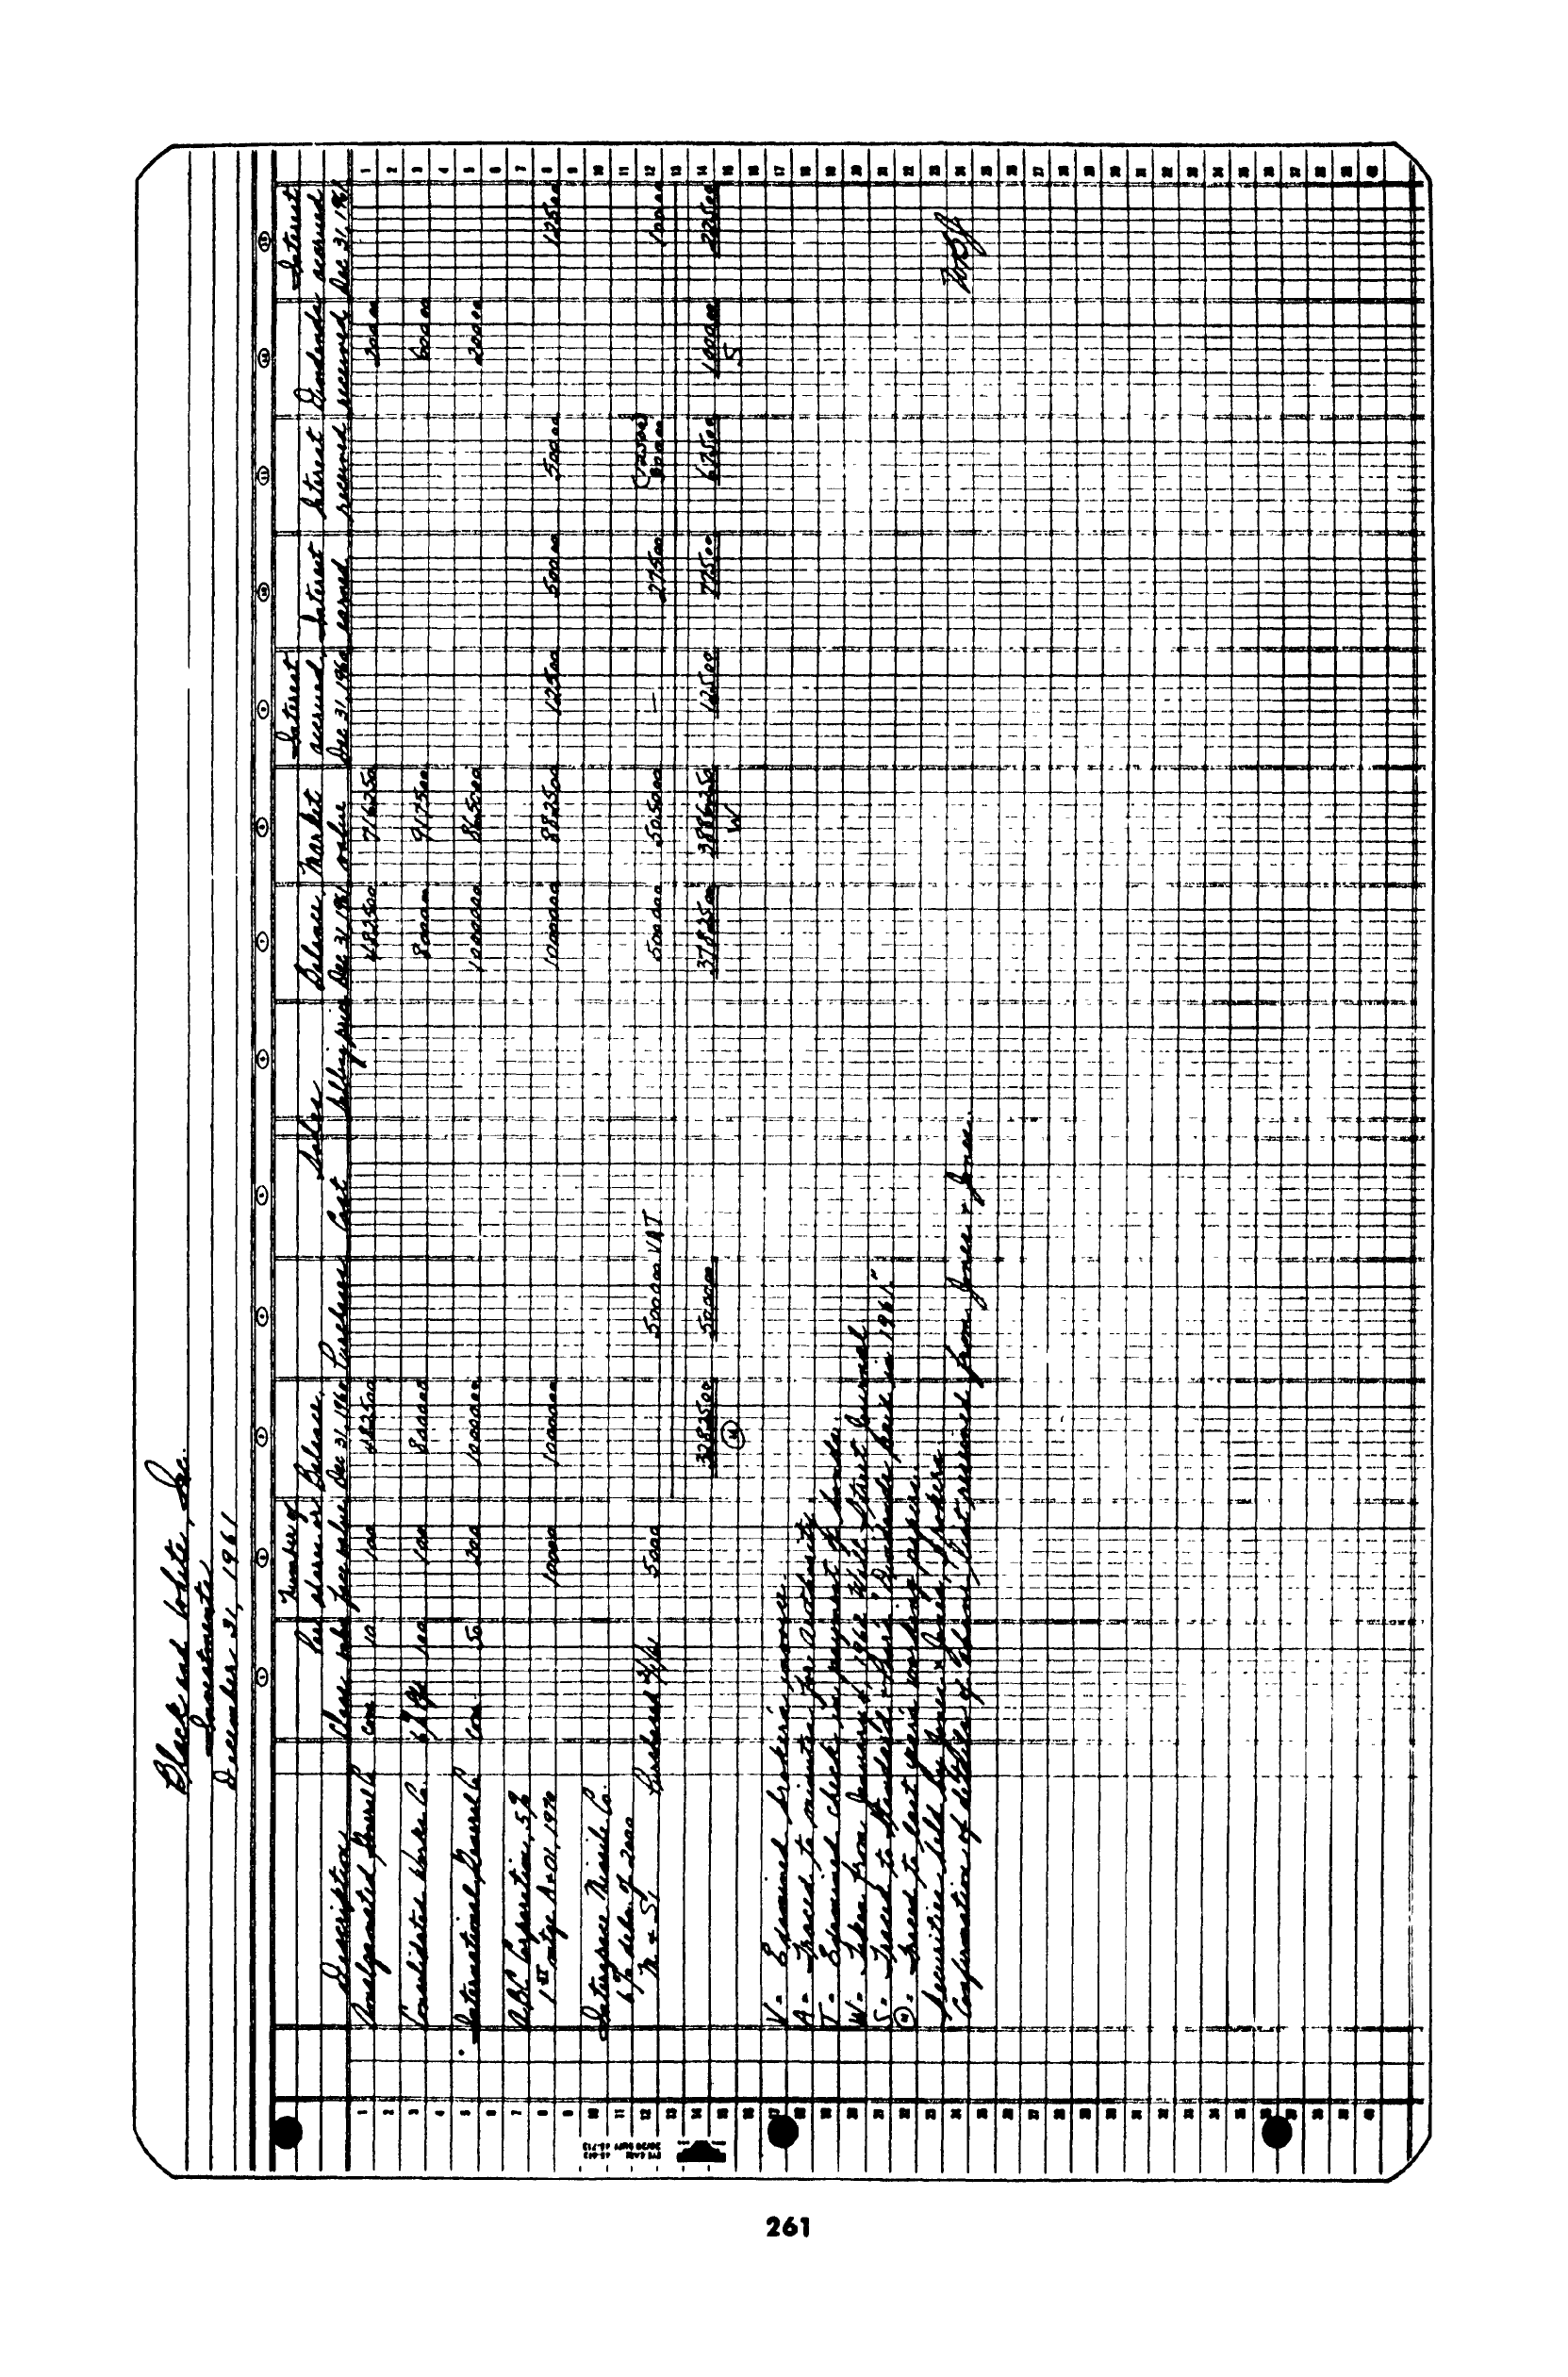 Black and White, Inc.
Investments
December 31, 1961
Description Class Par value Number of shares or face value Balance Dec 31 1960 Purchases Sales Cost Selling price Balance Dec 31 1961 Market value Interest accrued Dec 31, 1960 Interest earned Interest received Dividends received Interest accrued Dec 31, 1961
1 Amalgamated General Co Com 10 100 4825 00 4825 00 7162 50 200 00 1
2 2
3 Consolidated Works Co. 6% Pfd 100 100 8000 00 8000 00 9175 00 600 00 3
4 4
5 International General Co Com 50 200 10000 00 10000 00 8650 00 200 00 5
6 6
7 ABC Corporation, 5% 7
8 1st mtge A&O1, 1970 10000 10000 00 10000 00 8825 00 125 00 500 00 500 00 125 00 8
9 9
10 Interspace Missile Co. 10
11 6% deben of 2000 (25 00) 11
12 M & S1 Purchased 2/1/61 5000 5000 00 VAT 5000 00 5050 00 — 275 00 200 00 100 00 12
13 13
14 32825 00 5000 00 37825 00 38862 50 125 00 775 00 675 00 1000 00 225 00 14
15 W S 15
16 16
17 V = Examined broker's invoice. 17
18 A = Traced to minutes for authority. 18
19 T = Examined check in payment of bonds. 19
20 W = Taken from January 2, 1962 Wall Street Journal 20
21 S = Traced to Standard & Poor's "Dividends paid in 1961." 21
22 = Traced to last year's working papers. 22
23 Securities held by Jones & Jones, brokers 23
24 Confirmation of details of above list received from Jones & Jones. 24
25 25
26 26
27 27
28 28
29 29
30 30
31 31
32 32
33 33
34 34
35 35
36 36
37 37
38 38
39 39
40 40
261